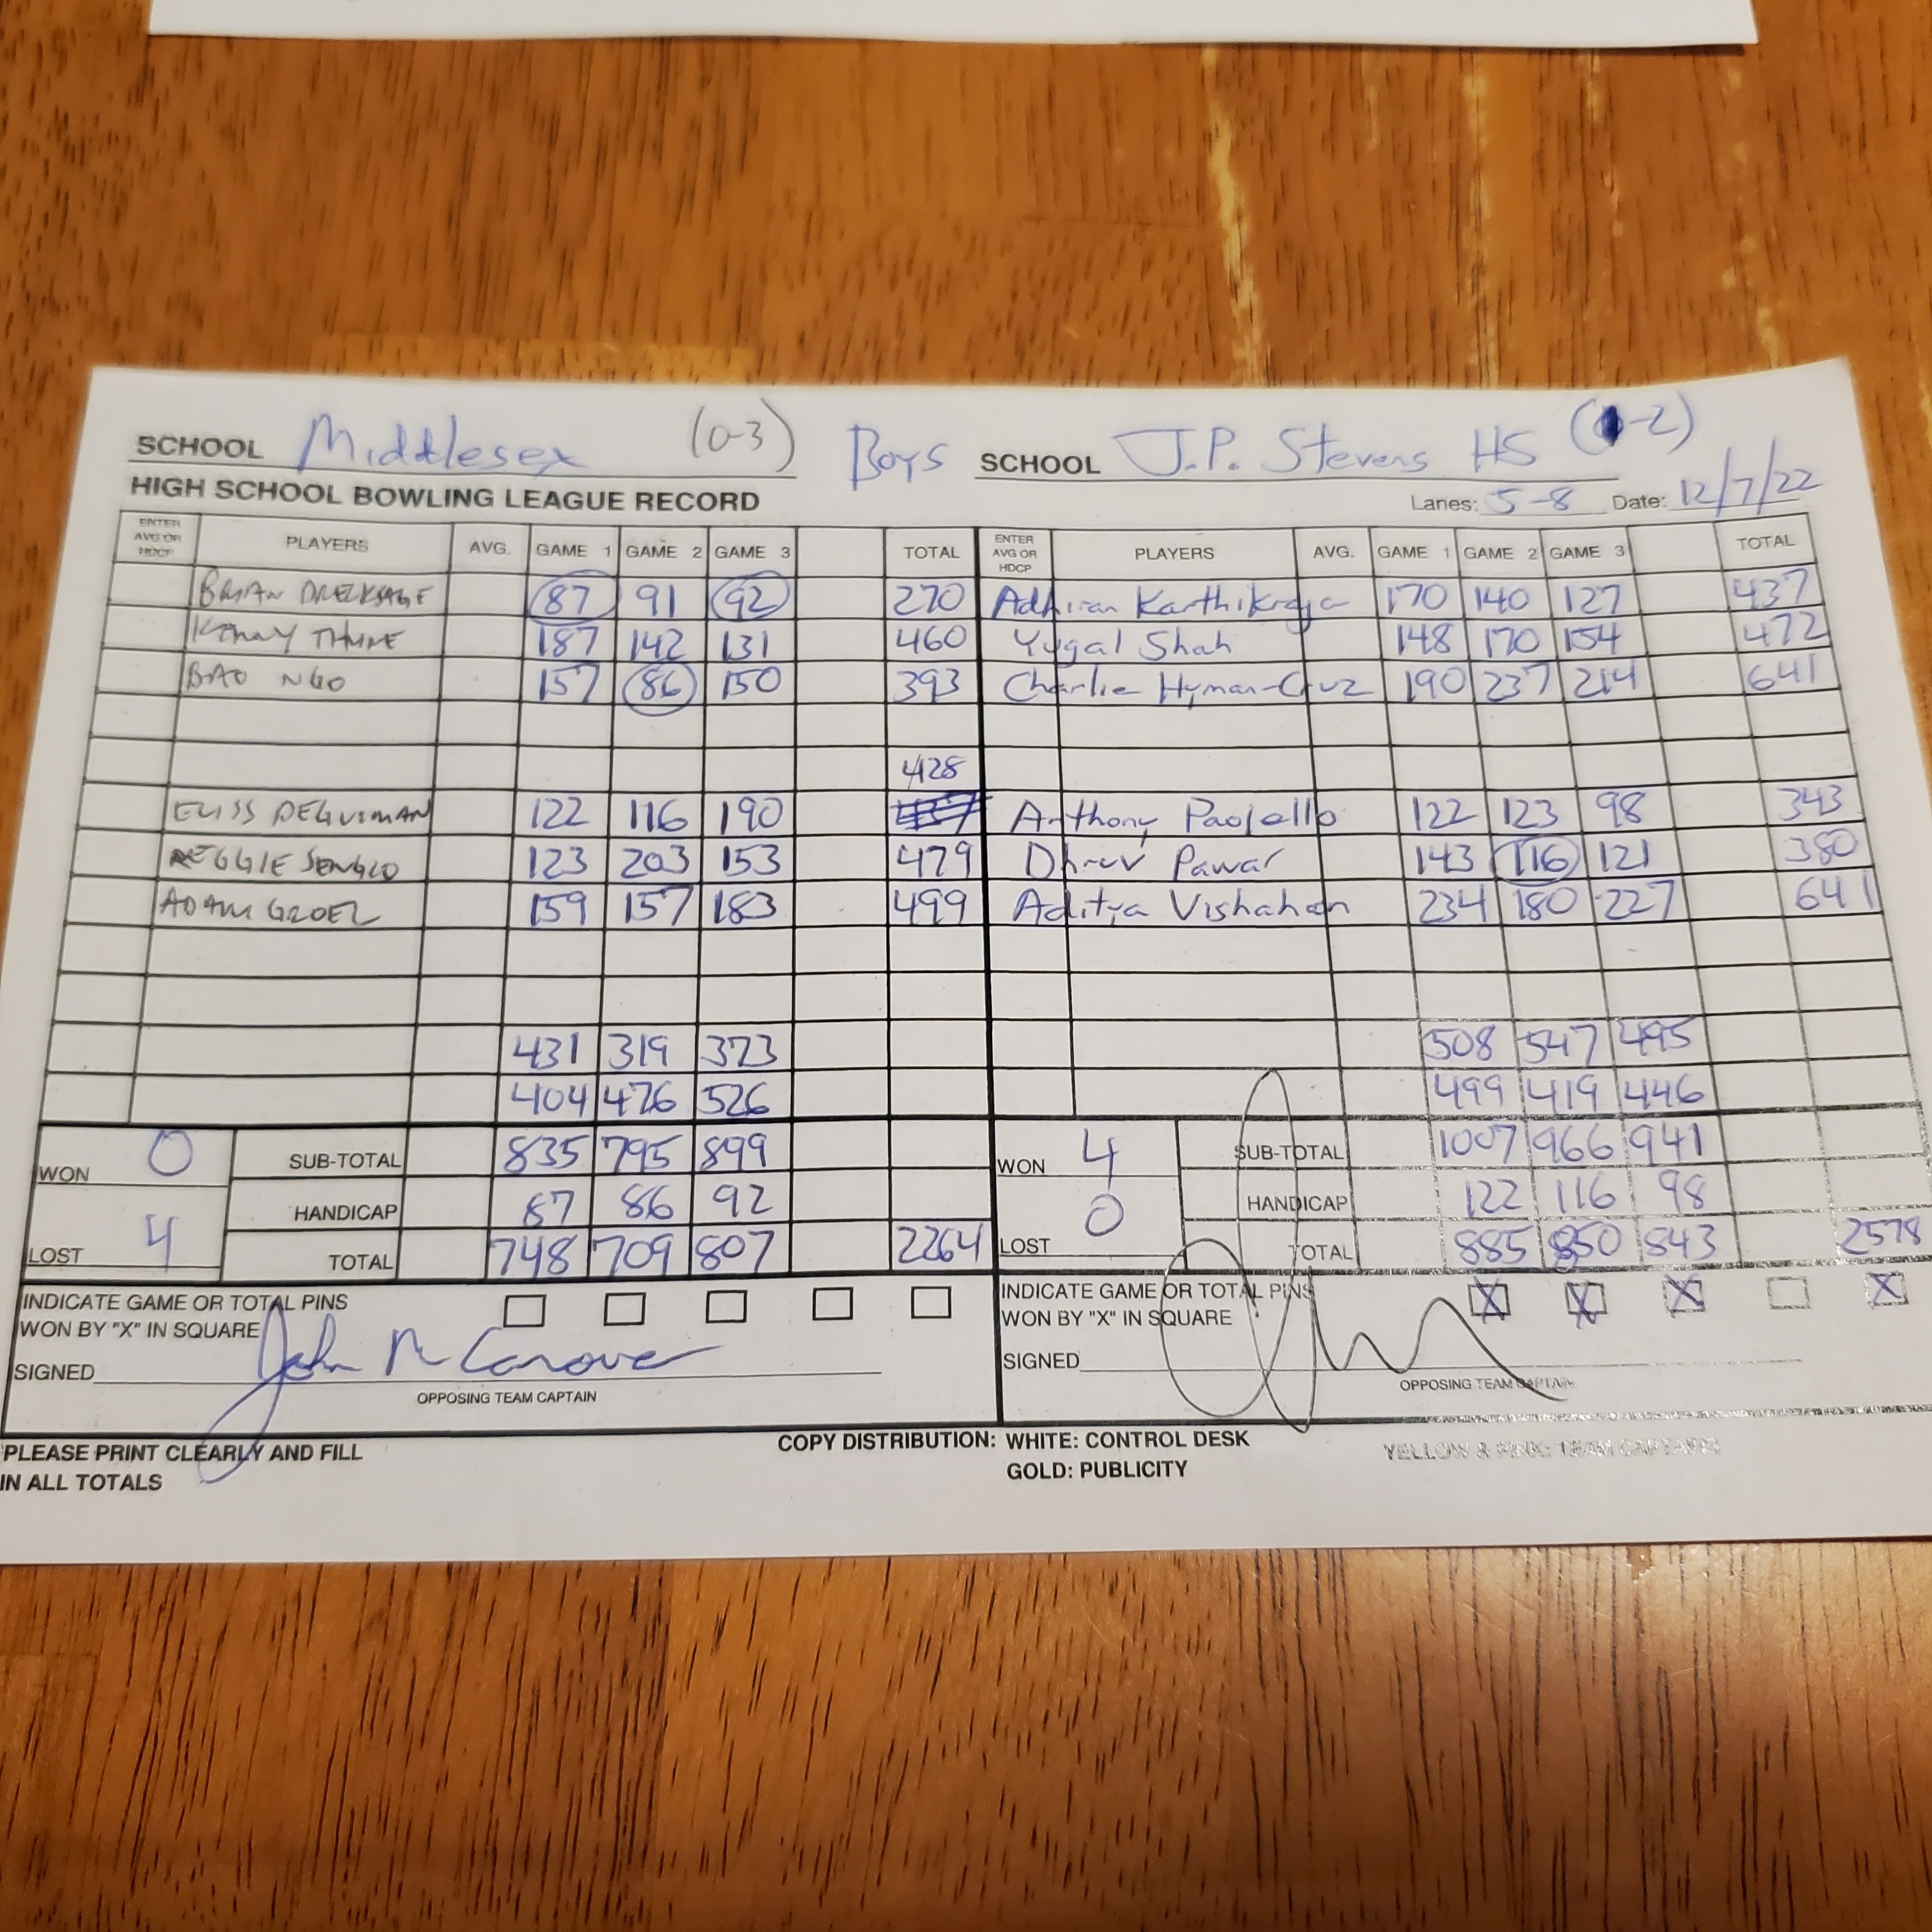 SCHOOL Middlesex (0-3) Boys SCHOOL J.P. Stevens HS ( -2)
HIGH SCHOOL BOWLING LEAGUE RECORD Lanes: 5-8 Date: 12/7/22
ENTER AVG OR HDCP PLAYERS AVG. GAME 1 GAME 2 GAME 3 TOTAL ENTER AVG OR HDCP PLAYERS AVG. GAME 1 GAME 2 GAME 3 TOTAL
BRIAN 87 91 92 270 Adhiran Karthikraja 170 140 127 437
KENNY 187 142 131 460 Yugal Shah 148 170 154 472
BAO NGO 157 86 150 393 Charlie Hyman-Cruz 190 237 214 641
428
ELISS DEGUZMAN 122 116 190 Anthony Paolello 122 123 98 343
REGGIE SENGCO 123 203 153 479 Dhruv Pawar 143 116 121 380
ADAM GROEL 159 157 183 499 Aditya Vishahan 234 180 227 641
431 319 373 508 547 495
404 476 526 499 419 446
WON 0 SUB-TOTAL 835 795 899 WON 4 SUB-TOTAL 1007 966 941
HANDICAP 87 86 92 HANDICAP 122 116 98
LOST 4 TOTAL 748 709 807 2264 LOST 0 TOTAL 885 850 843 2578
INDICATE GAME OR TOTAL PINS INDICATE GAME OR TOTAL PINS X X X X
WON BY "X" IN SQUARE WON BY "X" IN SQUARE
SIGNED John M Conover SIGNED
OPPOSING TEAM CAPTAIN OPPOSING TEAM CAPTAIN
PLEASE PRINT CLEARLY AND FILL COPY DISTRIBUTION: WHITE: CONTROL DESK YELLOW & PINK: TEAM CAPTAINS
IN ALL TOTALS GOLD: PUBLICITY